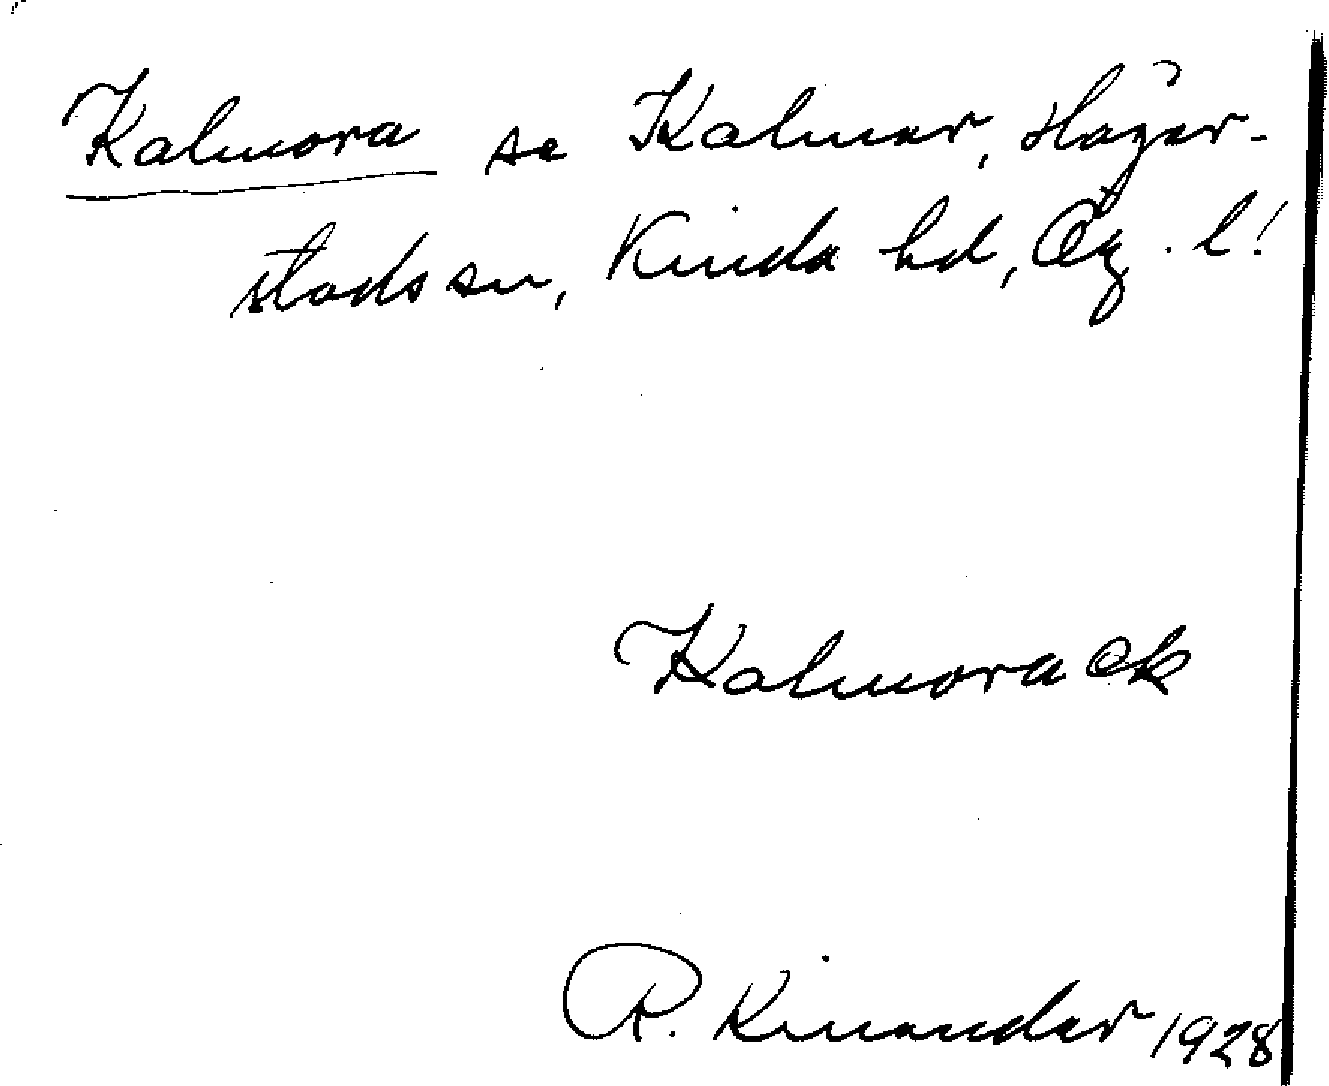 Kalmora se Kalmar, Häger-
stads sn, Kinda hd, Ög. l!
Kalmorack
R. Kinander 1928